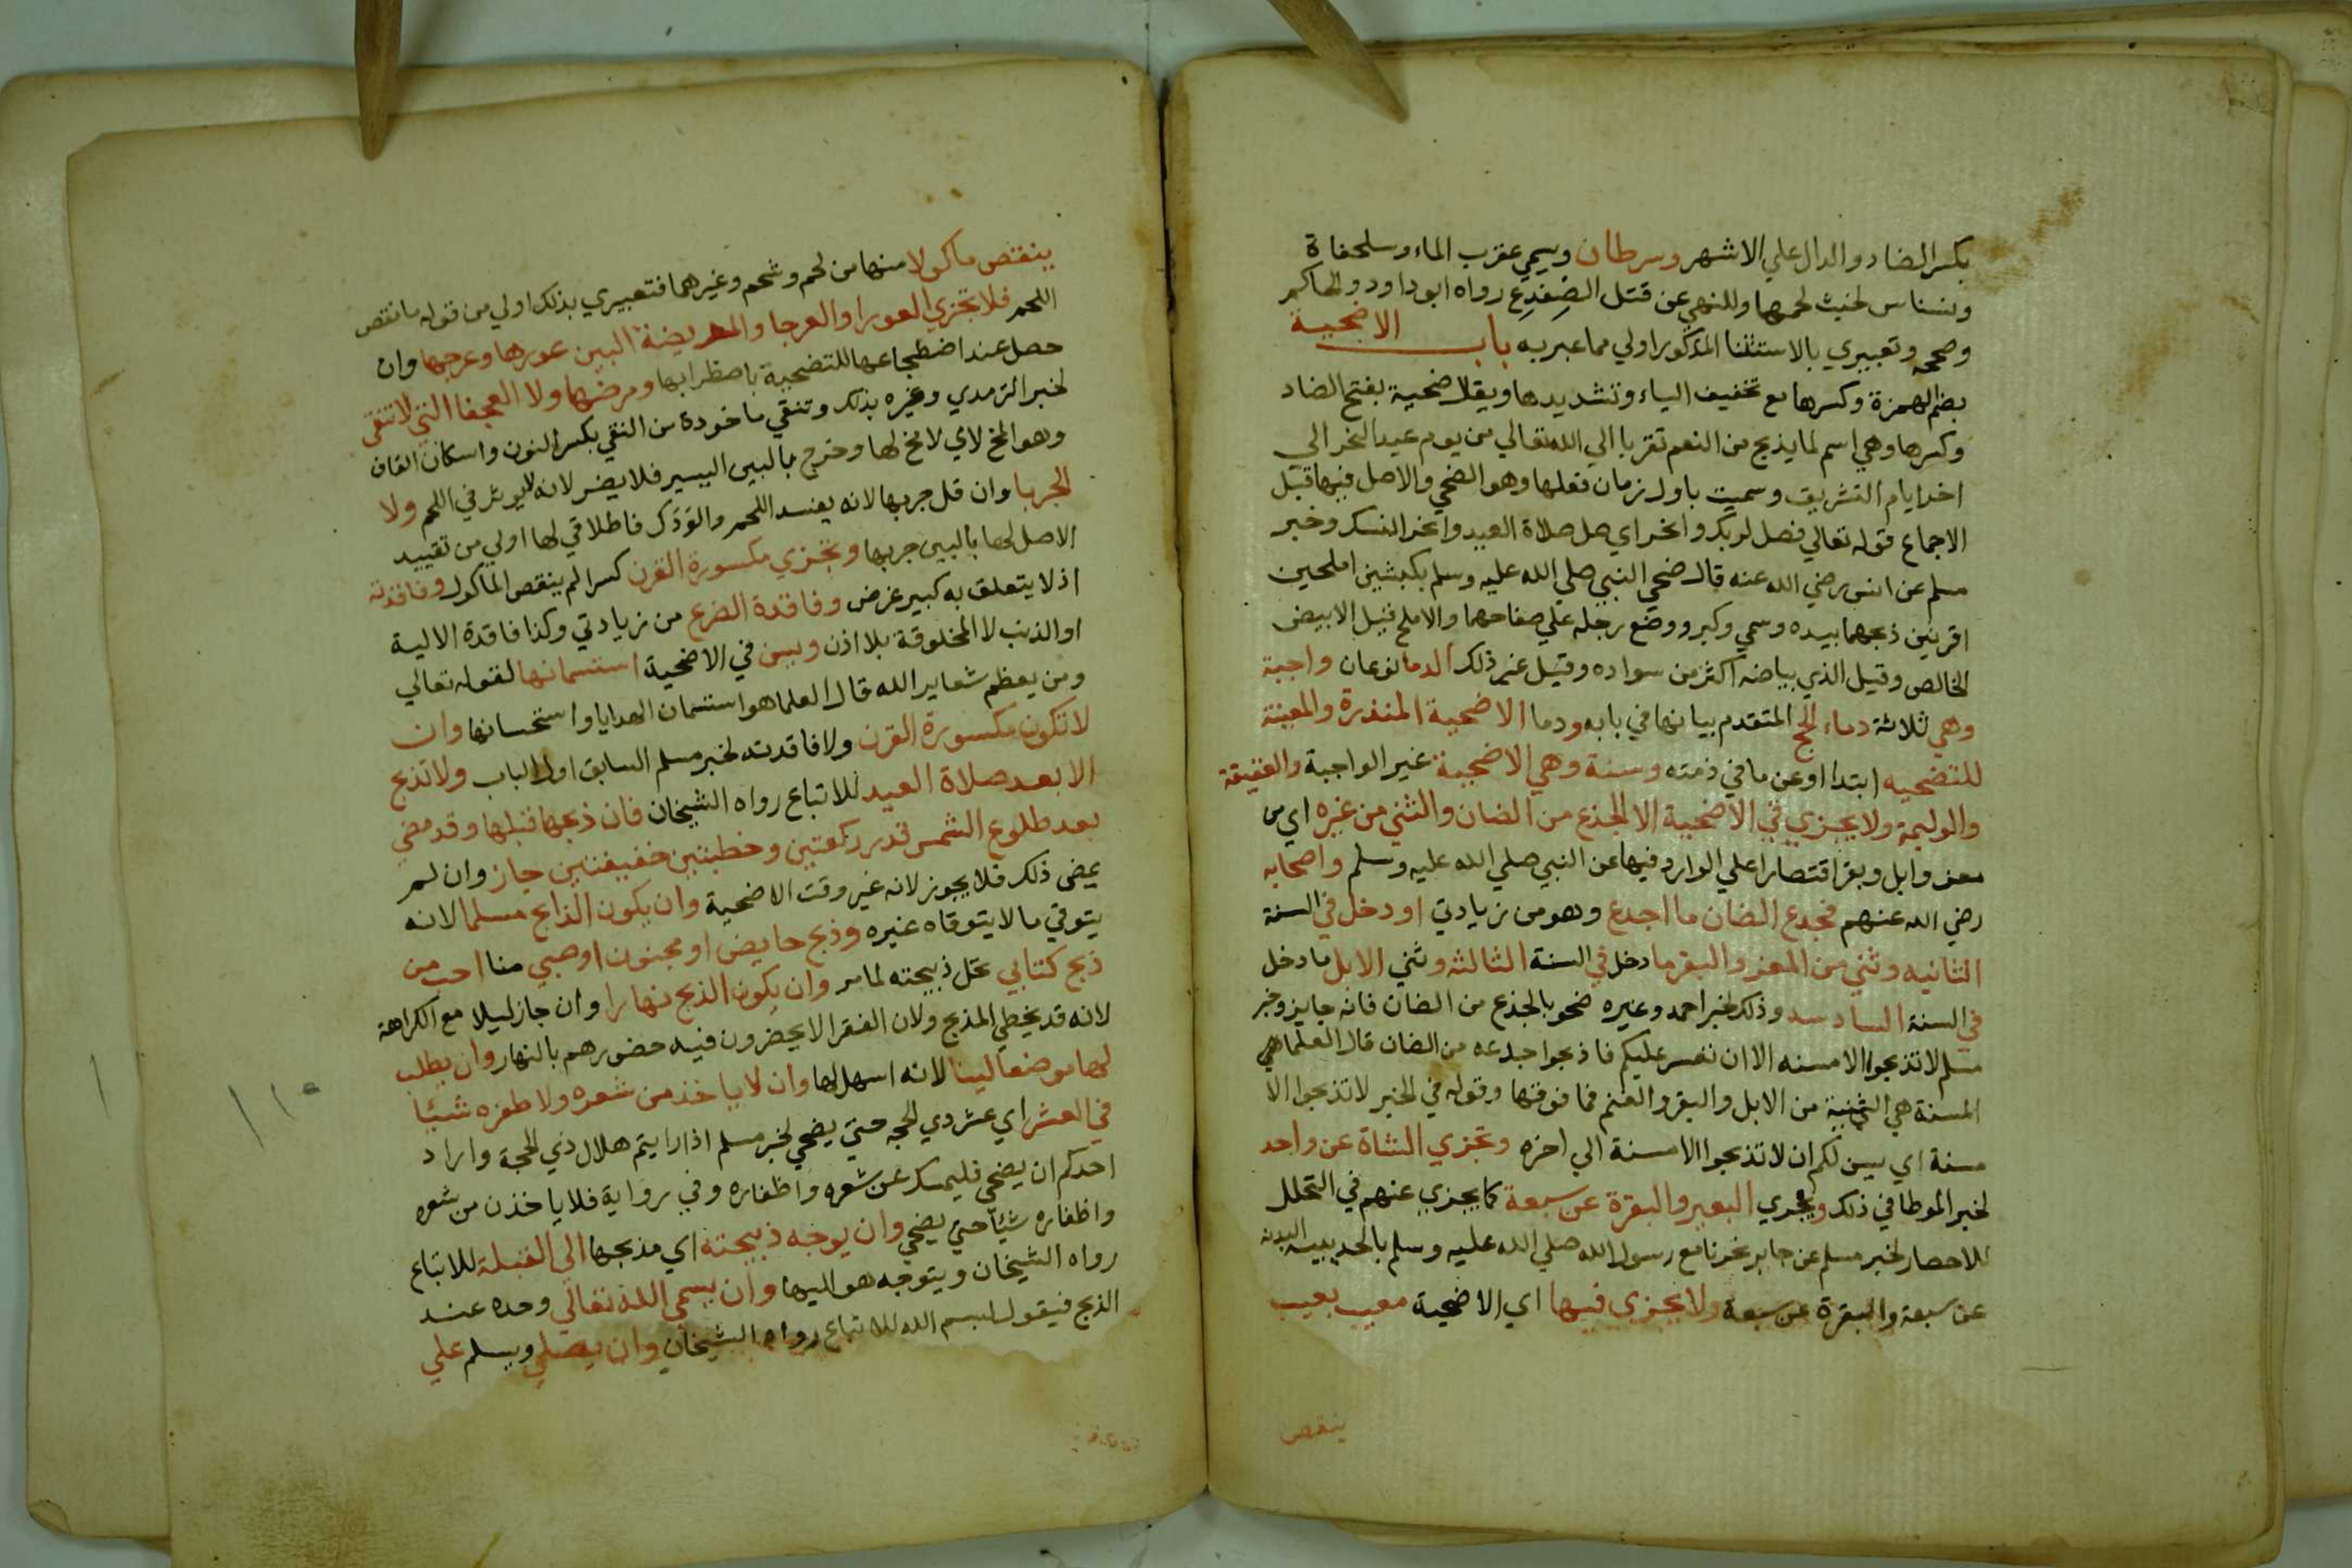 بكسر الضاد والدال علي الاشهر وسرطان ويسمي عقرب الماء وسلحفاة
ونسناس لخبث لحمها وللنهي عن قتل الضفدع رواه ابو داود والحاكم
وصححه وتعبيري بالاستثنا المذكور اولي مما عبر به باب الاضحية
بضم الهمزة وكسرها مع تخفيف الياء وتشديدها ويقال ضحية بفتح الضاد
وكسرها وهي اسم لما يذبح من النعم تقربا الي الله تعالي من يوم عيد النحر الي
اخر ايام التشريق وسميت باول زمان فعلها وهو الضحي والاصل فيها قبل
الاجماع قوله تعالي فصل لربك وانحر اي صل صلاة العيد وانحر النسك وخبر
مسلم عن انس رضي الله عنه قال ضحي النبي صلي الله عليه وسلم بكبشين املحين
اقرنين ذبحهما بيده وسمي وكبر ووضع رجله علي صفاحهما والاملح قيل الابيض
الخالص وقيل الذي بياضه اكثر من سواده وقيل غير ذلك الدما نوعان واجبة
وهي ثلاثة دماء الحج المتقدم بيانها في بابه ودما الاضحية المنذرة والمعينة
للتضحيه ابتدا او عن ما في ذمته وسنة وهي الاضحية غير الواجبة والعقيقة
والوليمة ولا يجزي في الاضحية الا الجذع من الضان والثني من غيره اي من
معز وابل وبقر اقتصارا علي الوارد فيها عن النبي صلي الله عليه وسلم واصحابه
رضي الله عنهم فجدع الضان ما اجدع وهو من زيادتي او دخل في السنة
الثانيه وثني من المعز والبقر ما دخل في السنة الثالثه وثني الابل ما دخل
في السنة السادسه وذلك لخبر احمد وغيره ضحو بالجذع من الضان فانه جايز وخبر
مسلم لا تذبحوا الا مسنه الا ان تعسر عليكم فاذبحوا جدعه من الضان قال العلما هي
المسنة هي الثنية من الابل والبقر والغنم فما فوقها وقوله في الخبر لا تذبحوا الا
مسنة اي يسن لكم ان لا تذبحوا الا مسنة الي اخره وتجزي الشاة عن واحد
لخبر الموطا في ذلك ويجزي البعير والبقرة عن سبعة كما يجزي عنهم في التحلل
للاحصار لخبر مسلم عن جابر نحرنا مع رسول الله صلي الله عليه وسلم بالحديبيه البدنه
عن سبعة والبقرة عن سبعة ولا يجزي فيها اي الاضحية معيب بعيب
ينقص
ينقص ماكولا منها من لحم وشحم وغيرهما فتعبيري بذلك اولي من قوله ما نقص
اللحم فلا تجزي العورا والعرجا والمريضة البين عورها وعرجها وان
حصل عند اضطجاعها للتضحية باضطرابها ومرضها ولا العجفا التي لا تنقي
لخبر الترمدي وغيره بذلك وتنقي ماخودة من النقي بكسر النون واسكان القاف
وهو المخ لاي لا مخ لها وخرج بالبين اليسير فلا يضر لانه لا يوثر في اللحم ولا
الجربا وان قل جربها لانه يفسد اللحم والودك فاطلاقي لها اولي من تقييد
الاصل لها بالبين جربها وتجزي مكسورة القرن كسرا لم ينقص الماكول وفاقدته
اذ لا يتعلق به كبير غرض وفاقدة الضرع من زيادتي وكذا فاقدة الالية
او الذنب لا المخلوقة بلا اذن ويسن في الاضحية استسمانها لقوله تعالي
ومن يعظم شعاير الله قال العلما هو استسمان الهدايا واستحسانها وان
لا تكون مكسورة القرن ولا فاقدته لخبر مسلم السابق اول الباب ولا تذبح
الا بعد صلاة العيد للاتباع رواه الشيخان فان ذبحها قبلها وقد مضي
بعد طلوع الشمس قدر ركعتين وخطبتين خفيفتين جاز وان لم
يمضي ذلك فلا يجوز لانه غير وقت الاضحية وان يكون الذابح مسلما لانه
يتوقي ما لا يتوقاه غيره وذبح حايض او مجنون او صبي منا احب من
ذبح كتابي تحل ذبيحته لما مر وان يكون الذبح نهارا وان جاز ليلا مع الكراهة
لانه قد يخطي المذبح ولان الفقرا لا يحضرون فيه حضورهم بالنهار وان يطلب
لها موضعا لينا لانه اسهل لها وان لا ياخذ من شعره ولا ظفره شيئا
في العشر اي عشر دي الحجه حتي يضحي لخبر مسلم اذا رايتم هلال ذي الحجة واراد
احدكم ان يضحي فليمسك عن شعره واظفاره وفي رواية فلا ياخذن من شعره
واظفاره شيئا حتي يضحي وان يوجه ذبيحته اي مذبحها الي القبلة للاتباع
رواه الشيخان ويتوجه هو اليها وان يسمي الله تعالي وحده عند
الذبح فيقول بسم الله للاتباع رواه الشيخان وان يصلي ويسلم علي
١١٠